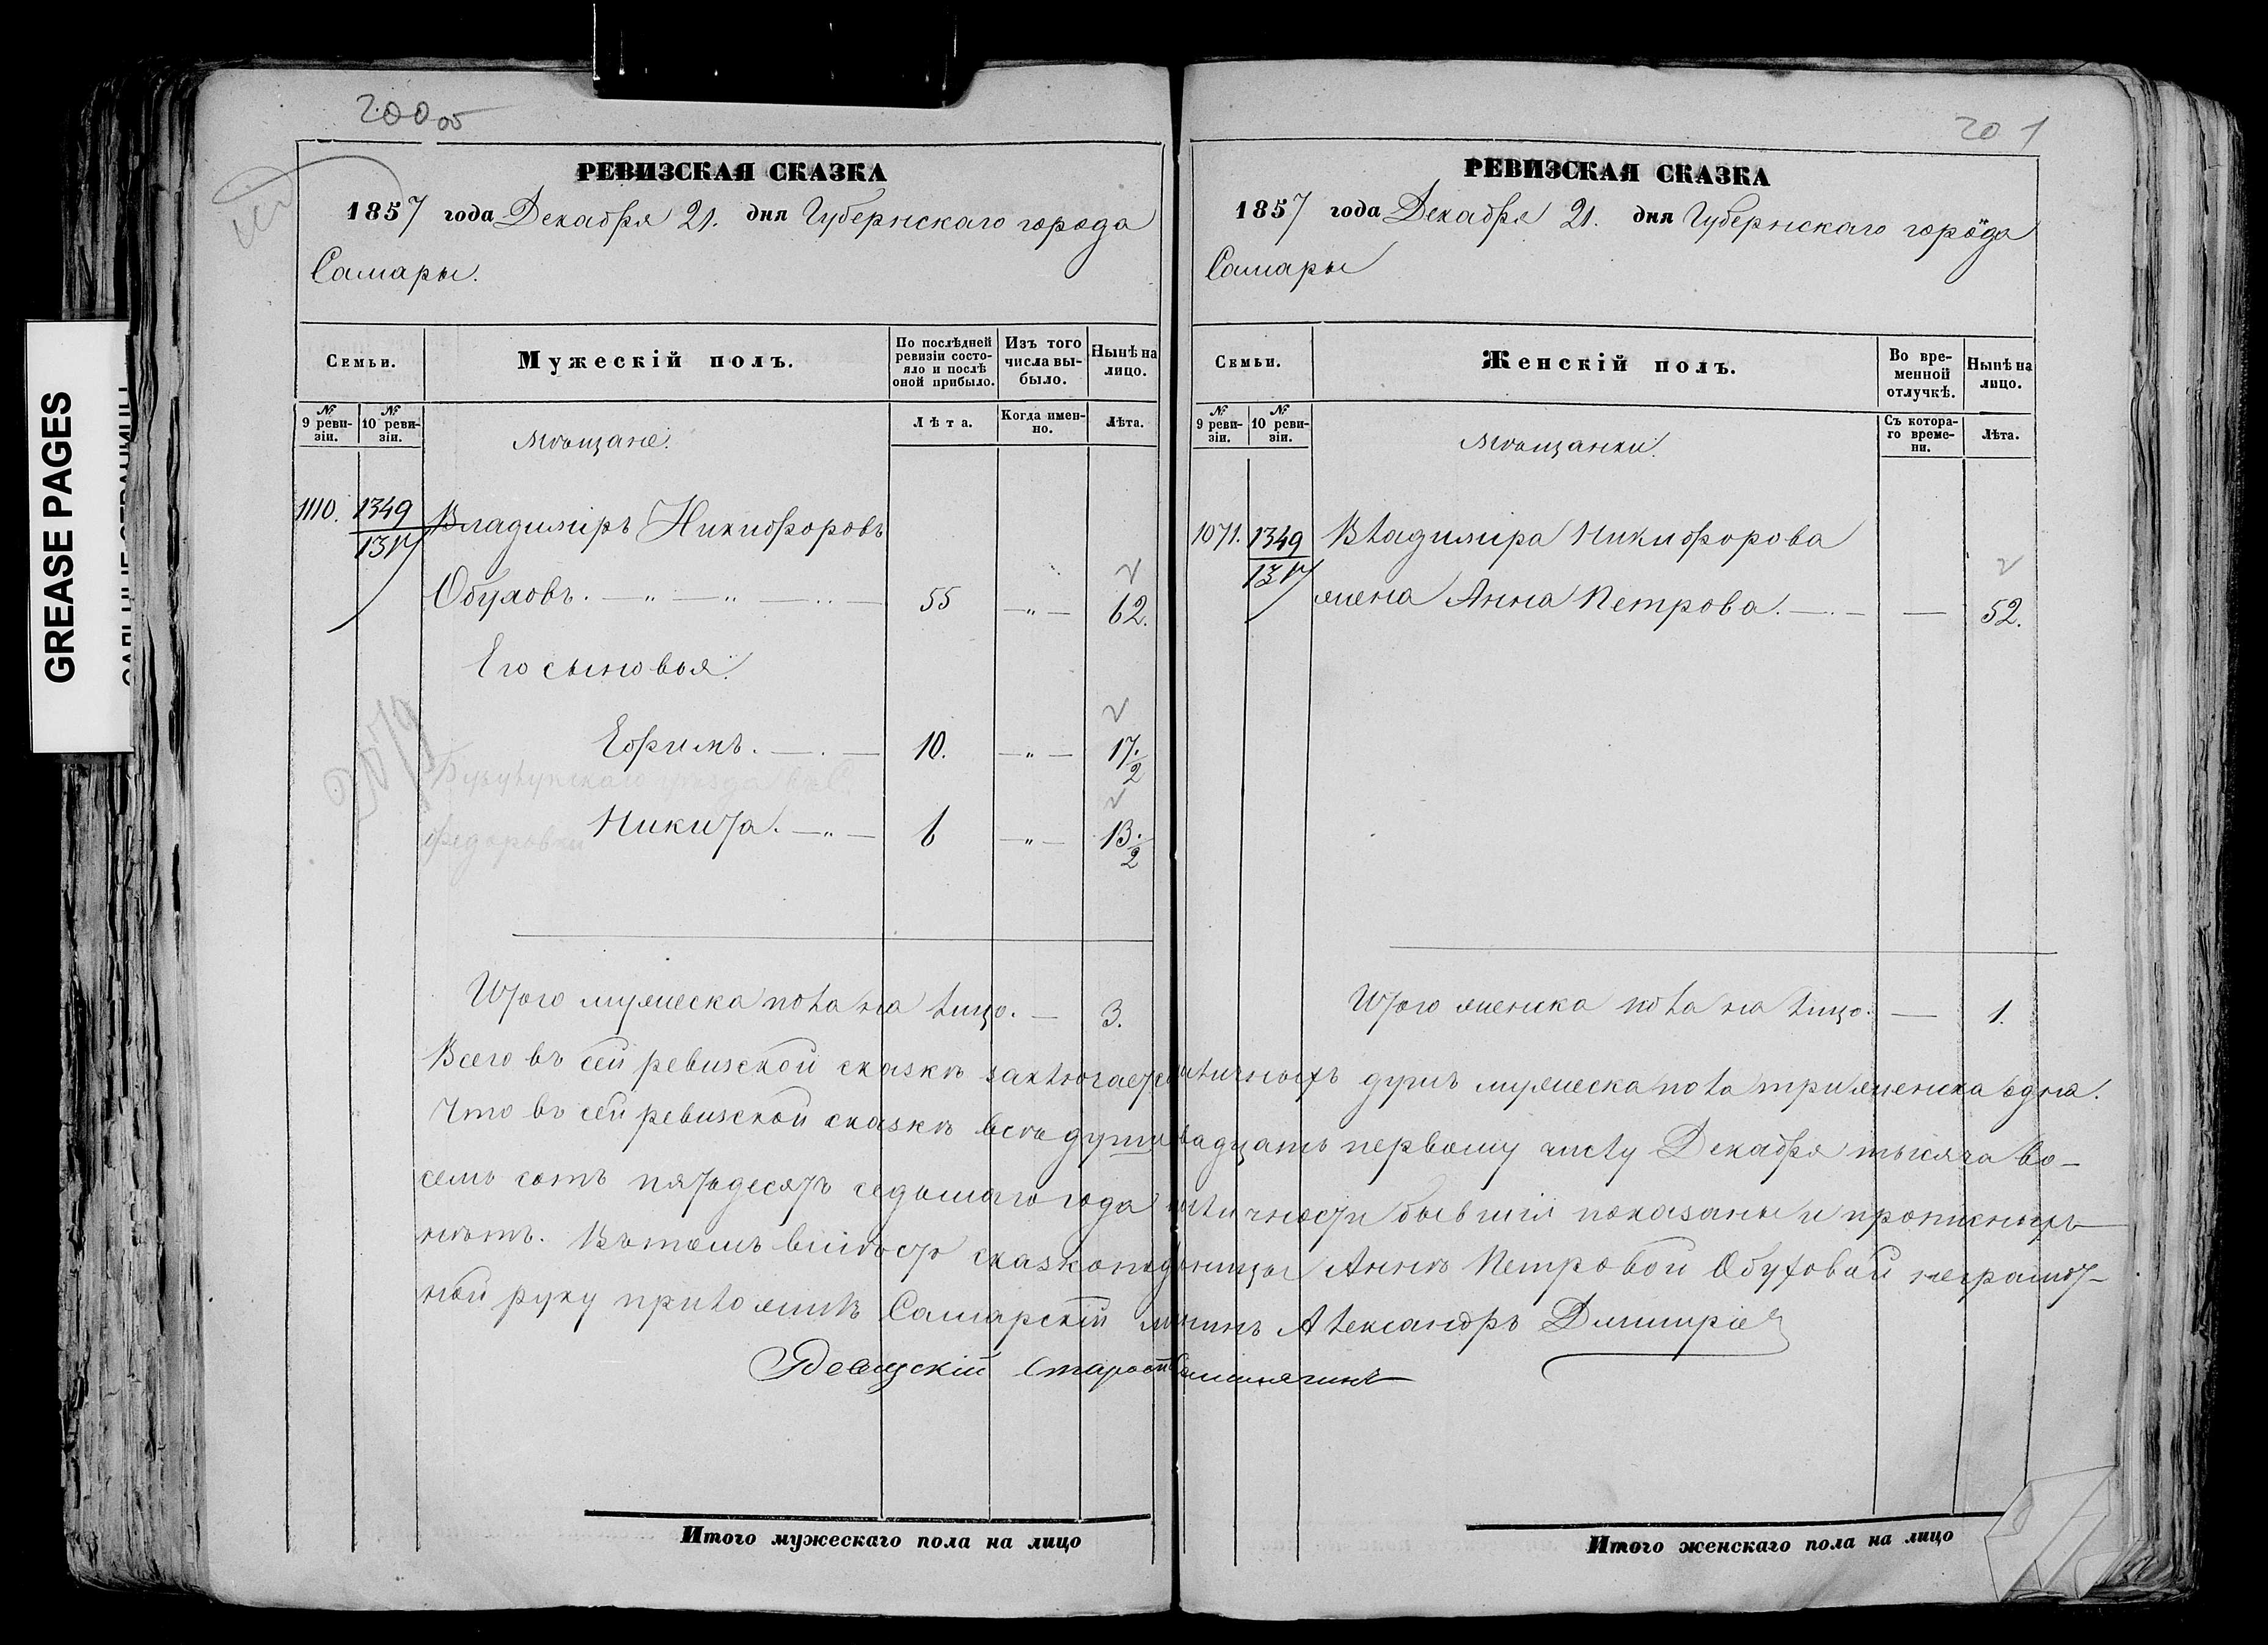 GREASE PAGES
200 об
РЕВИЗСКАЯ СКАЗКА
1857 года Декабря 21. дня Губернскаго города
Самары.
Семьи.
Мужескій полъ.
По послѣдней ревизіи состояло и послѣ оной прибыло.
Изъ того числа выбыло.
Нынѣ на лицо.
№ 9 ревизіи.
№ 10 ревизіи.
Мѣщане.
Лѣта.
Когда именно.
Лѣта.
1110. 1349 Владиміръ Никифоровъ
Обуховъ. 55 62.
Его сыновья.
Ефимъ. 10. 17. 2
Бузулукскаго уѣзда
Федоровки
Никита. 6 13. 2
2079
Итого мужеска пола на лицо. — 3.
201
РЕВИЗСКАЯ СКАЗКА
1857 года Декабря 21. дня Губернскаго города
Самары
Семьи.
Женскій полъ.
Во временной отлучкѣ.
Нынѣ на лицо.
№ 9 ревизіи.
№ 10 ревизіи.
Мѣщанки.
Съ котораго времени.
Лѣта.
1071. 1349 Владиміра Никифорова
жена Анна Петрова. — 52.
Итого женска пола на лицо. — 1.
Всего въ сей ревизской сказкѣ заключается наличныхъ душъ мужеска пола три женска одна.
Что въ сей ревизской сказкѣ всѣ души двадцать первому числу Декабря тысяча во-
семь сотъ пятьдесятъ седьмаго года наличности бывшія показаны и прописныхъ
нѣтъ. Въ томъ вмѣсто сказкоподавицы Анны Петровой Обуховой неграмот-
ной руку приложилъ Самарскій мѣщанинъ Александръ Димитріе
Староста
Итого мужескаго пола на лицо
Итого женскаго пола на лицо